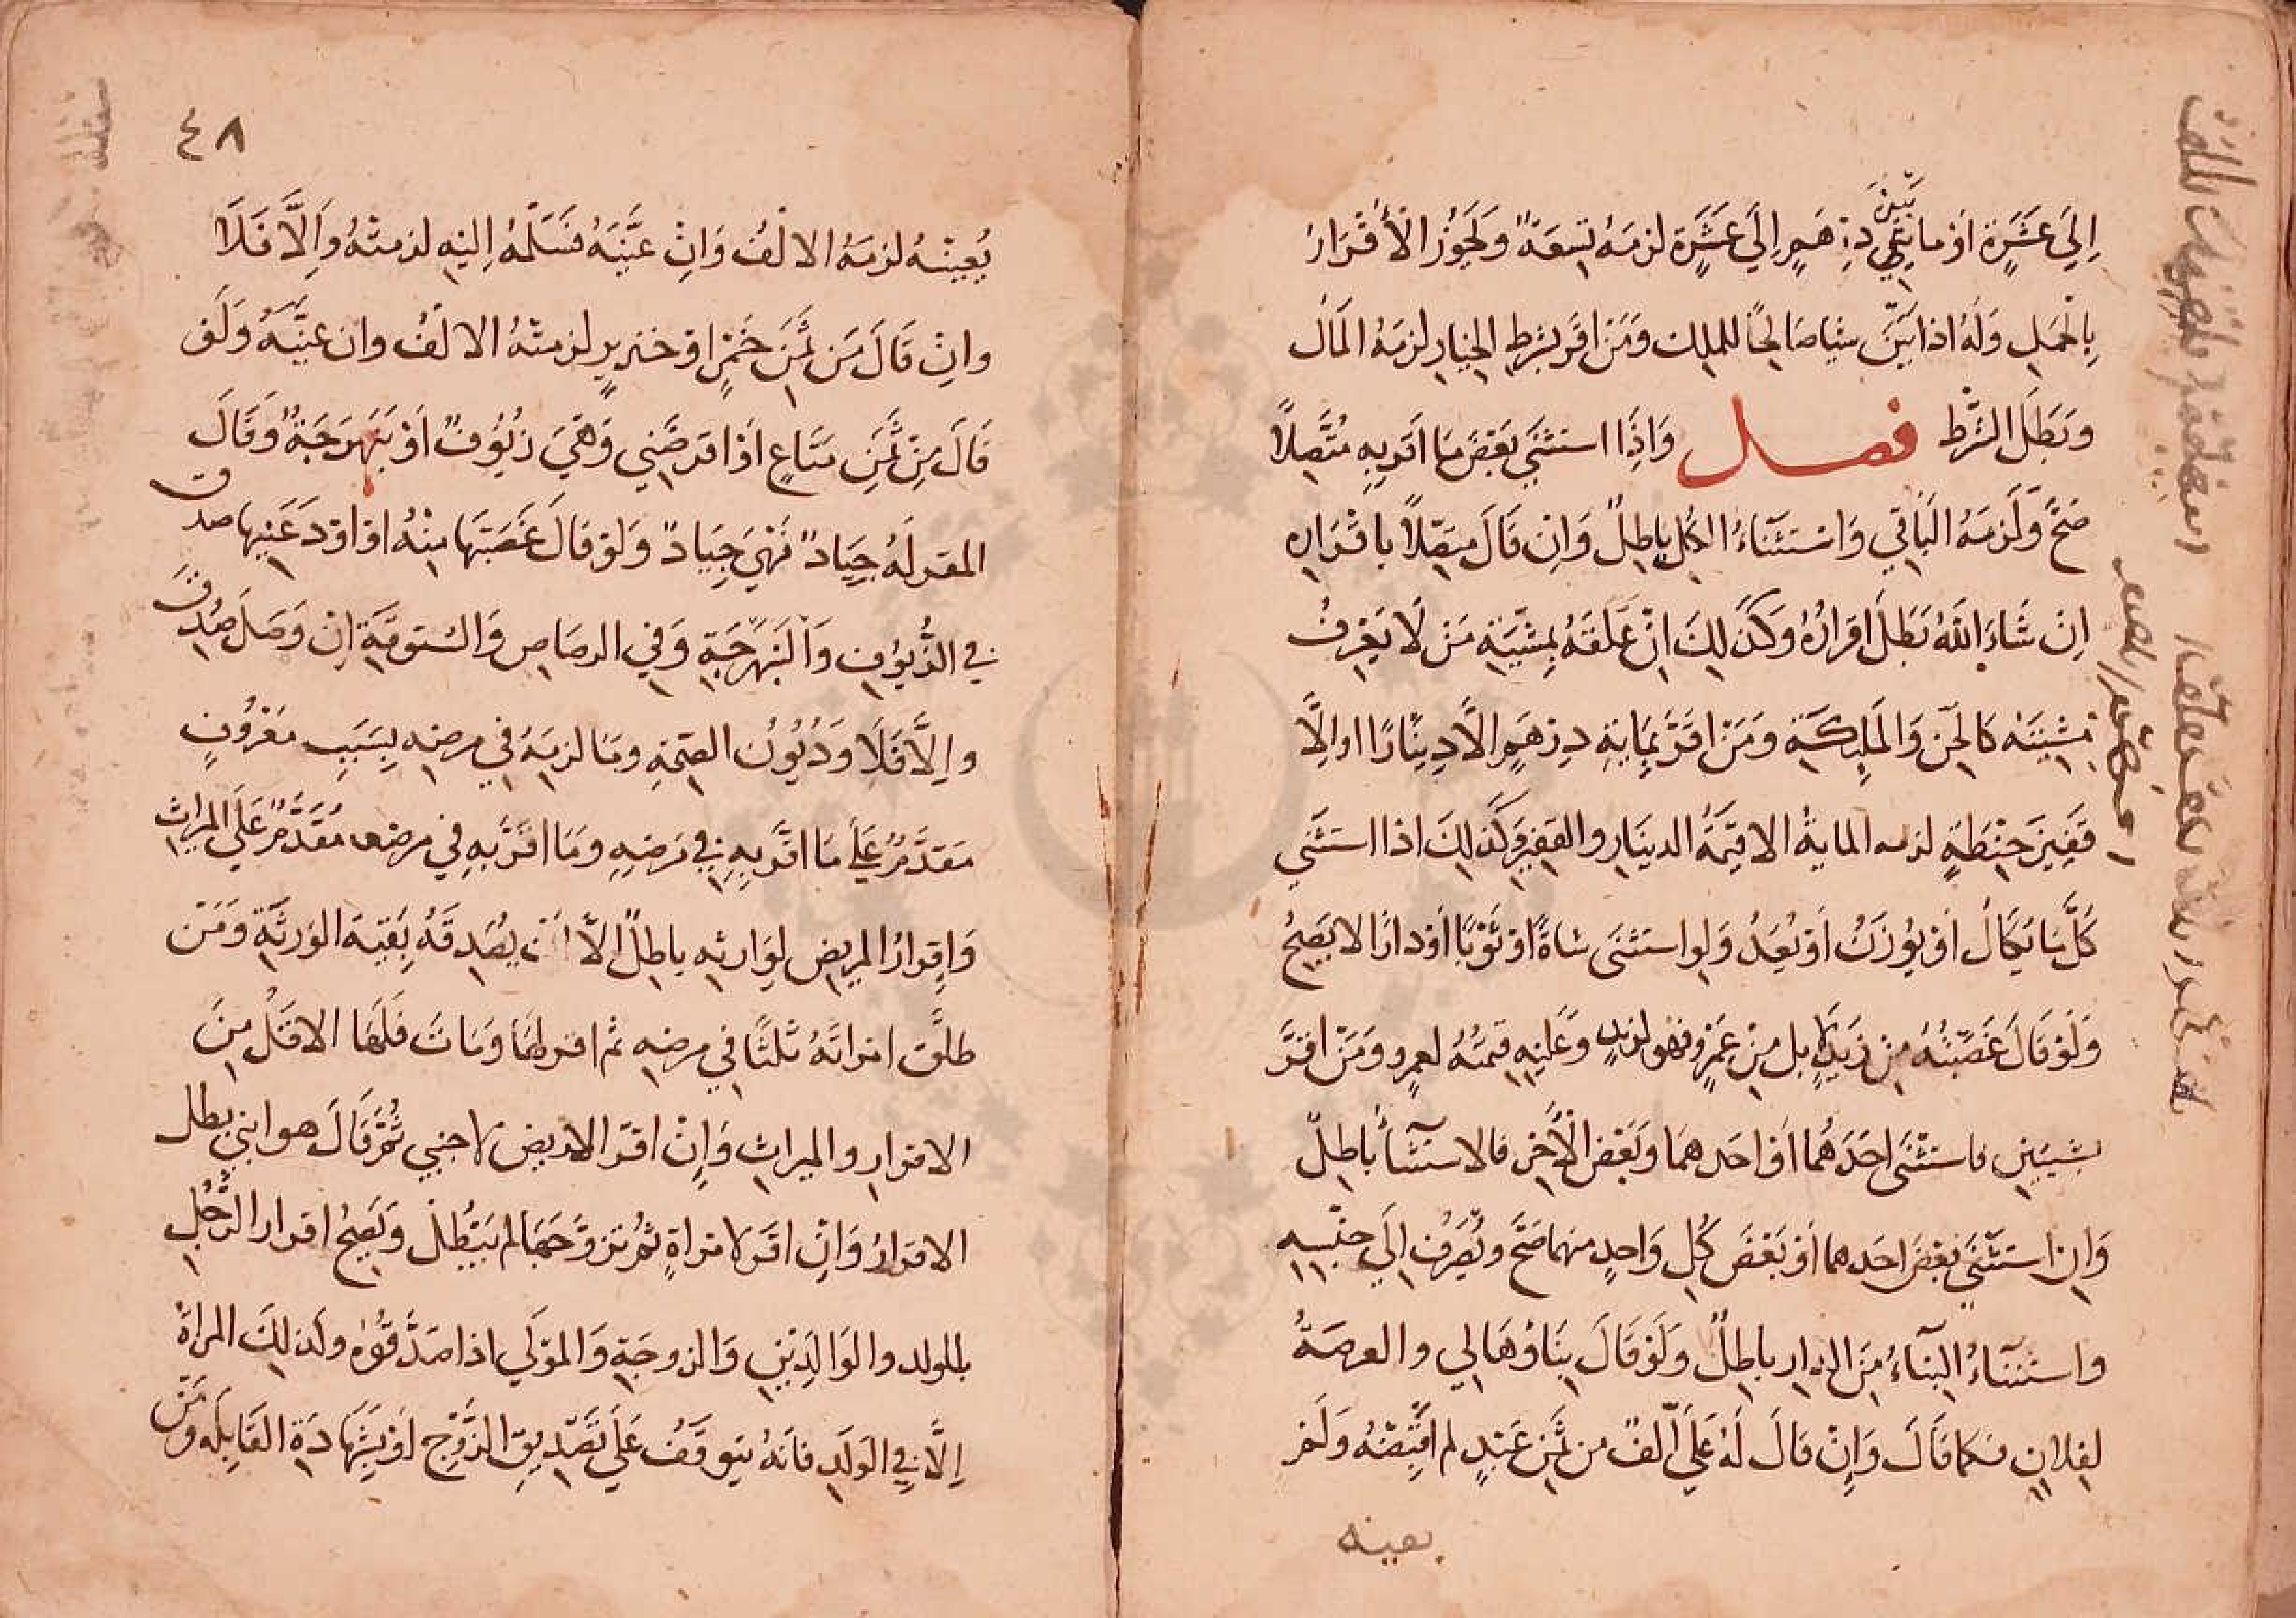 إِلَى عَشَرَةٍ اَوْ ما بَيْنَ دِرْهَمٍ إِلَى عَشَرَةٍ لزمَهُ تِسعَةٌ وَيَجُوزُ الْأَقْرَارُ
بِالْحَمْلِ وَلَهُ اذا بَيَّنَ سَبَبًا صَالِحًا للملك وَمَنْ اقَر بشَرطِ الخِيَارِ لزمَهُ المَالُ
وَبَطَلَ الشَّرْط فصل وَاِذَا استثنَى بَعْضَ مَا اَقَر بِهِ مُتَّصِلًا
صَحَّ وَلَزِمَهُ الْبَاقِي وَاسْتثنَاءُ الكُل بَاطِلٌ وَاِنْ قَالَ متصِلًا باقْرَارِه
اِنْ شَاءَ اللَّهُ بَطَلَ اقرارُهُ وَكَذَلِكَ اِنْ عَلَّقَهُ بِمشيَةِ مَنْ لَا يَعْرِفُ
مشيَتَهُ كَالجِن وَالمَليكَةِ وَمَنْ اقَرَّ بِمَايةِ دِرْهَمٍ اِلَّا دِينَارًا او اِلَّا
قَفِيزَ حِنْطَةٍ لزمه المايةُ الا قِيمَةُ الدينَارِ والقفيز وَكَذلِكَ اذا استَثنَى
كُلَّ مَا يُكَالُ أوْ يُوزَنُ أوْ يُعَدُ وَلو استثنَى شاةً اوْ ثَوْبًا أوْ دارًا لا يَصِحُ
وَلَوْ قَالَ غَصَبْتُهُ مِن زَيدٍ بل مِنْ عَمْرٍو فهو لزيدٍ وَعَلَيْهِ قيمَتُهُ لعمرٍو وَمَنْ اقرَّ
بشيئَينِ فاستثنَى احَدَهُما اَوْ احَدَهمَا وَبَعْضَ الْأخَرِ فالاستثنَاءُ بَاطِلٌ
وَاِن استثنَى بَعْضَ احَدهما أوْ بَعْضَ كُلِ وَاحِدٍ منهما صَحَّ ويُصْرَفُ اِلَى جنْسِهِ
واستثنَاءُ البنَاءُ مِنَ الدارِ باطِلٌ وَلَوْ قَالَ بِنَاؤهَا لِي والعرصَةُ
لفلانٍ فكما قَالَ وَاِنْ قَالَ لَهُ عَلَيَّ اَلْفٌ من ثمَنِ عَبْدٍ لم اَقْبِضْهُ وَلَمْ
يعينه
٤٨
يُعَينْهُ لزمَهُ الالْفُ وَاِنْ عَيَّنَهُ فَسَلَّمهُ اِليْهِ لزمتْهُ وَاِلَّا فَلَا
واِنْ قَالَ مِن ثَمَنِ خَمْرٍ اوْ خنزِيرٍ لزمتْهُ الالفُ وان عَيَّنَهُ وَلَوْ
قَالَ مِنْ ثَمَنِ مَتَاعٍ اَوْ اقرضَنِي وَهِيَ زيُوْفٌ اَوْ بَنَهْرَجَةٌ وَقَالَ
المقر لَهُ جِيَادٌ فَهِيَ جِيَادٌ وَلوْ قَالَ غَصَبتَهَا مِنْهُ اوْ اوْدَعَنيها صدق
فِي الزُّيُوْفِ وَالْبَنَهْرَجَةِ وَفِي الرصَاصِ وَالسَتوقَةِ اِنْ وَصَلَ صُدِقَ
واِلَّا فَلَا وَدُيُوْنُ الصِحَّةِ وَمَا لزمَهُ فِي مرضِه بِسَبَبٍ مَعْرُوْفٍ
مُقدَّمٌ عَلَى مَا اقَر بِهِ فِي مَرَضِهِ وَمَا اقَرَّ بِهِ فِي مرضه مُقَدَّمٌ عَلَى الميراث
وَاِقرارُ المرِيضِ لوَارثِه باطِلٌ اِلَّا اَن يصَدقَهُ بَقيَة الوَرثَةِ وَمَنْ
طلَّقَ امراتَهُ ثلثًا فِي مرضِه ثم اقر لهَا وَمَاتَ فَلَهَا الاقَل مِنَ
الاقرارِ والميراثِ وَاِنْ اقرّ المريض لاجنبي ثُمَّ قَالَ هو ابني بطل
الاقرارُ وَاِنْ اقر لامراةٍ ثُمَّ تزوَّجَهَا لم يَبْطُلْ وَيَصِحُ اقرار الرَّجُلِ
بالولد والوَالِدَيْنِ وَالزوجَةِ وَالموْلَى اذا صَدَّقوُه وكذلِكَ المراةُ
اِلَّا فِي الوَلَدِ فانهُ يتوقفُ عَلَى تَصْدِيقِ الزَّوْجِ اَوْ بِشَهَادَةِ القَابِلَه وَمَنْ